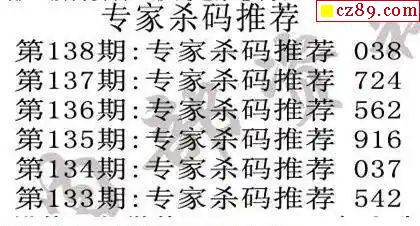 cz89.com
专家杀码推荐
第138期:专家杀码推荐 038
第137期:专家杀码推荐 724
第136期:专家杀码推荐 562
第135期:专家杀码推荐 916
第134期:专家杀码推荐 037
第133期:专家杀码推荐 542